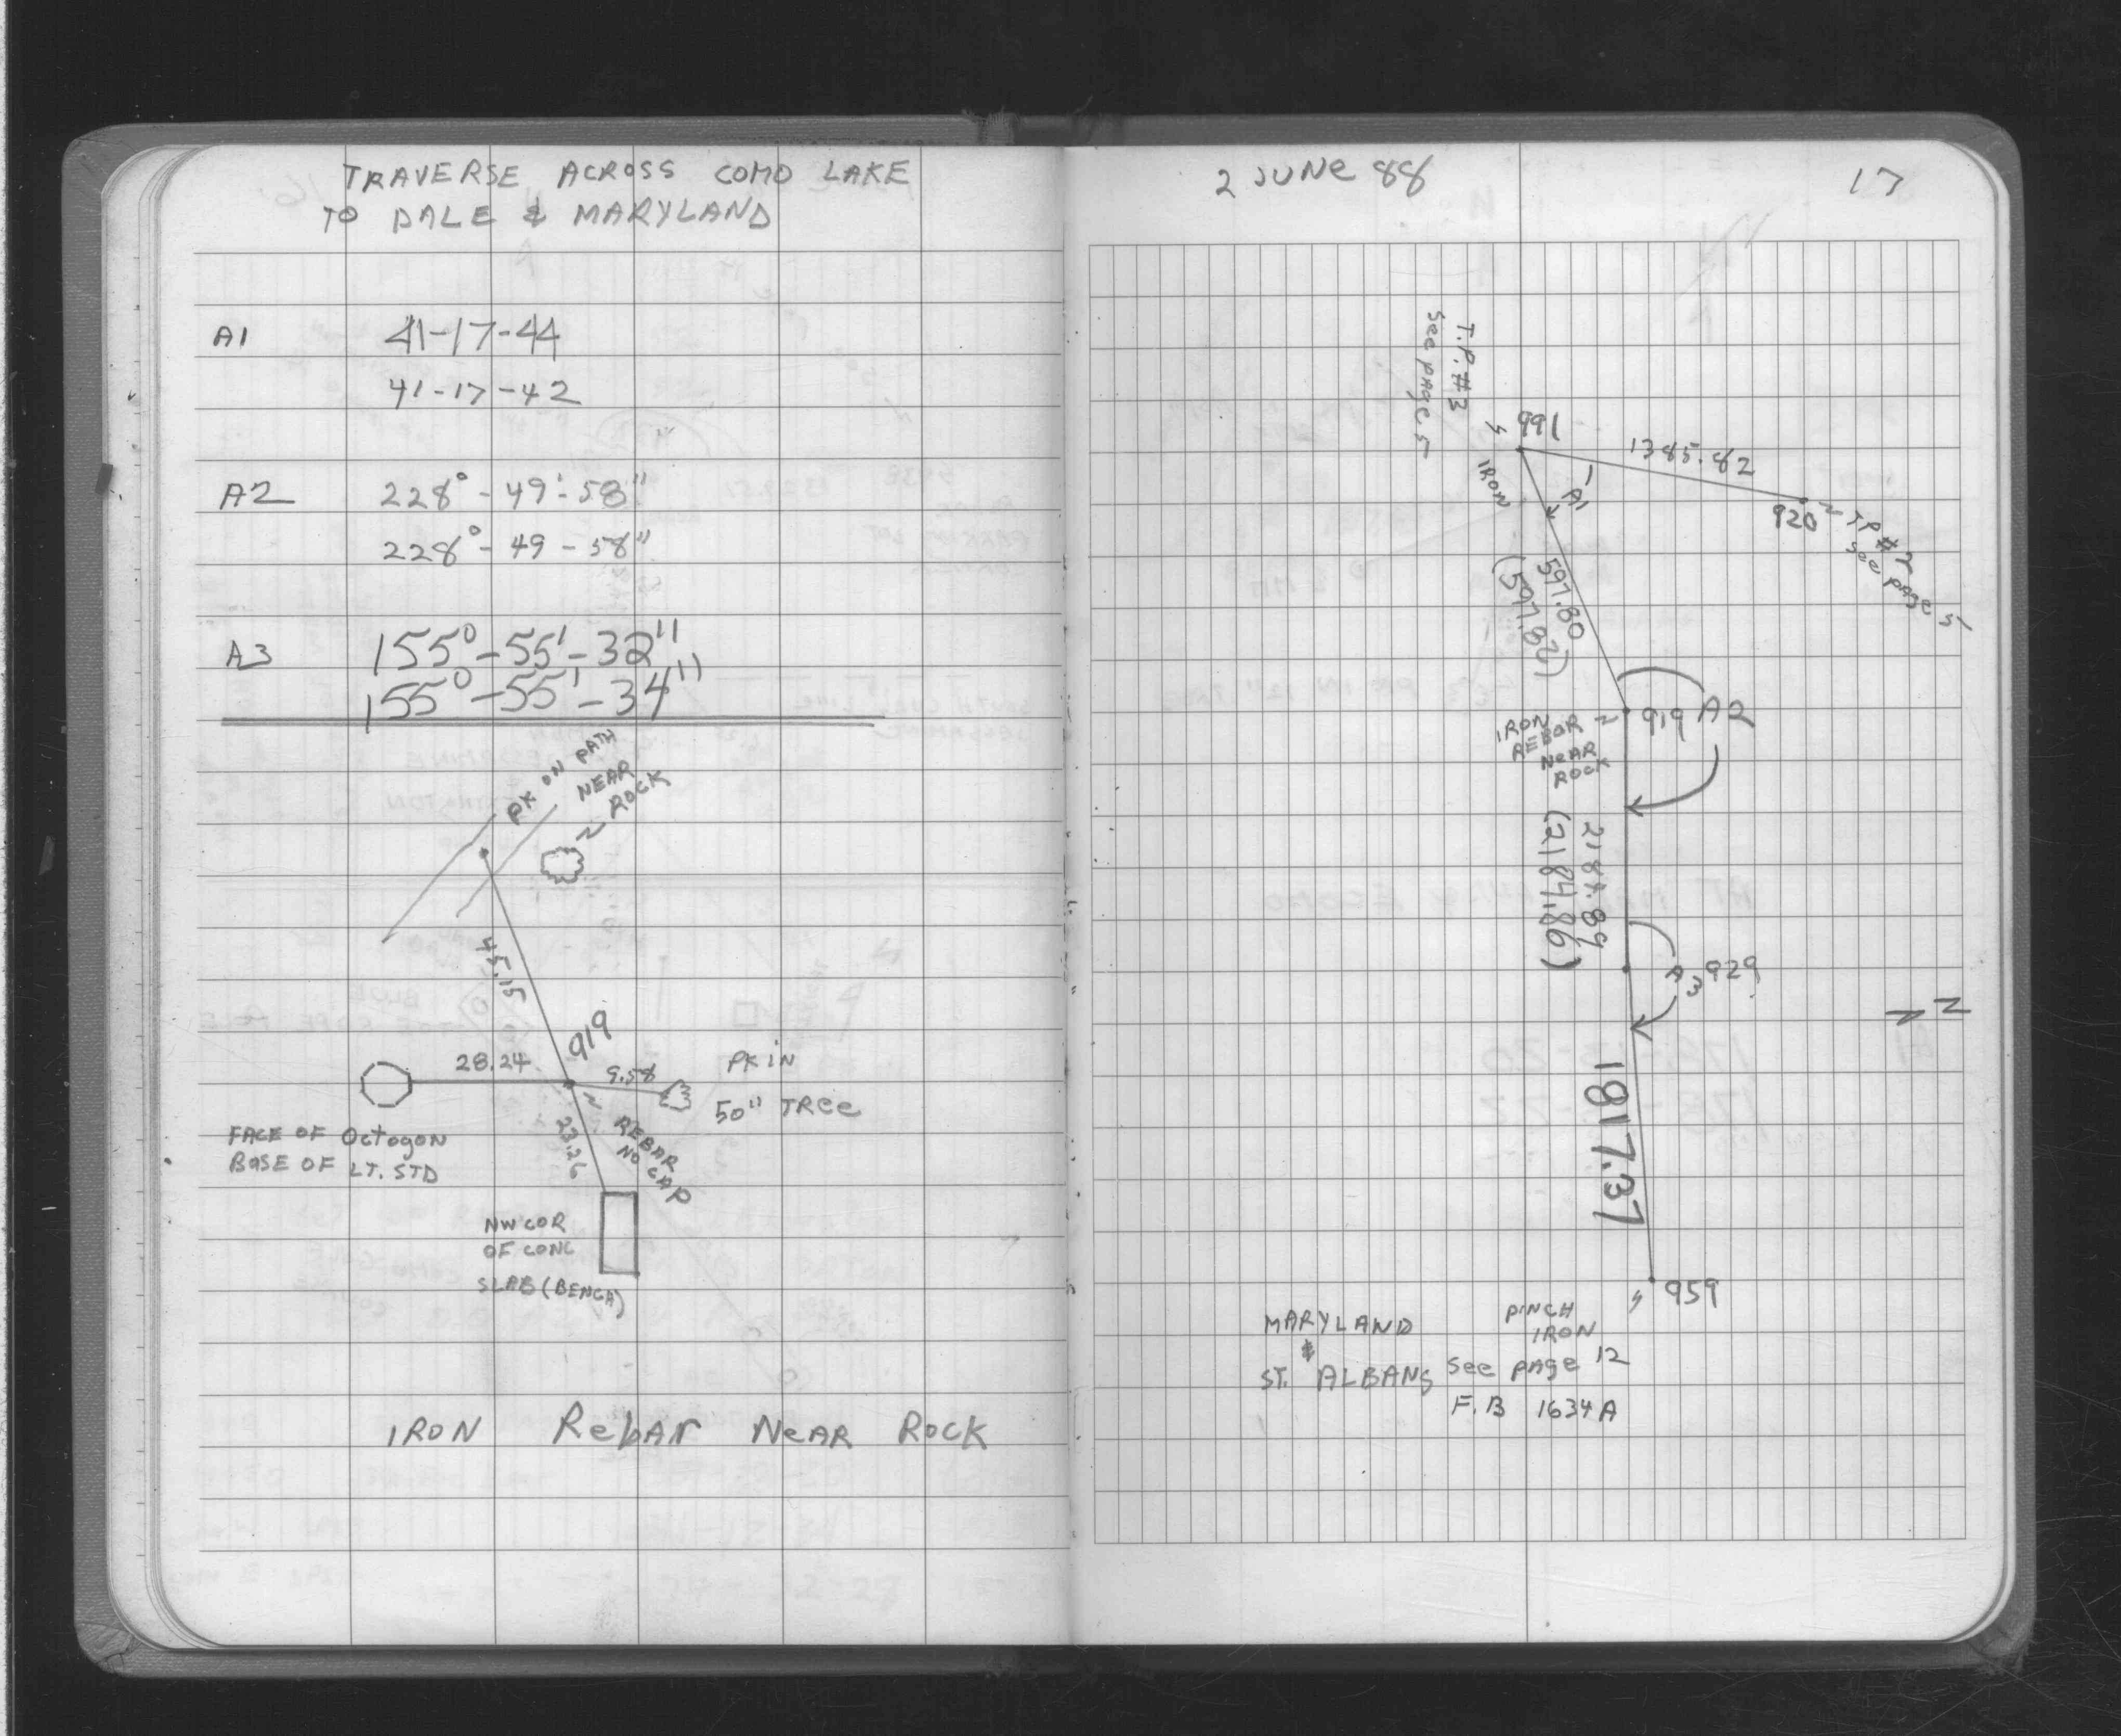 TRAVERSE ACROSS COMO LAKE
TO DALE & MARYLAND
A1 41-17-44
41-17-42
A2 228°-49'-58"
228°-49-58"
A3 155°-55'-32"
155°-55'-34"
PK ON PATH
NEAR
ROCK
45.15
919
28.24
9.58
PK IN
50" TREE
FACE OF OCTOGON
BASE OF LT. STD
23.26
REBAR
NO CAP
NW COR
OF CONC
SLAB (BENCH)
IRON Rebar NEAR ROCK
2 JUNE 88
17
T.P.#3
See page 5
991
IRON
1385.82
A1
920
TP #2
See page 5
597.80
(597.82)
919 A2
IRON
REBOR
NEAR
ROCK
2184.89
(2184.86)
A3 929
N
1817.37
959
PINCH
IRON
MARYLAND
&
ST. ALBANS See page 12
F.B 1634A